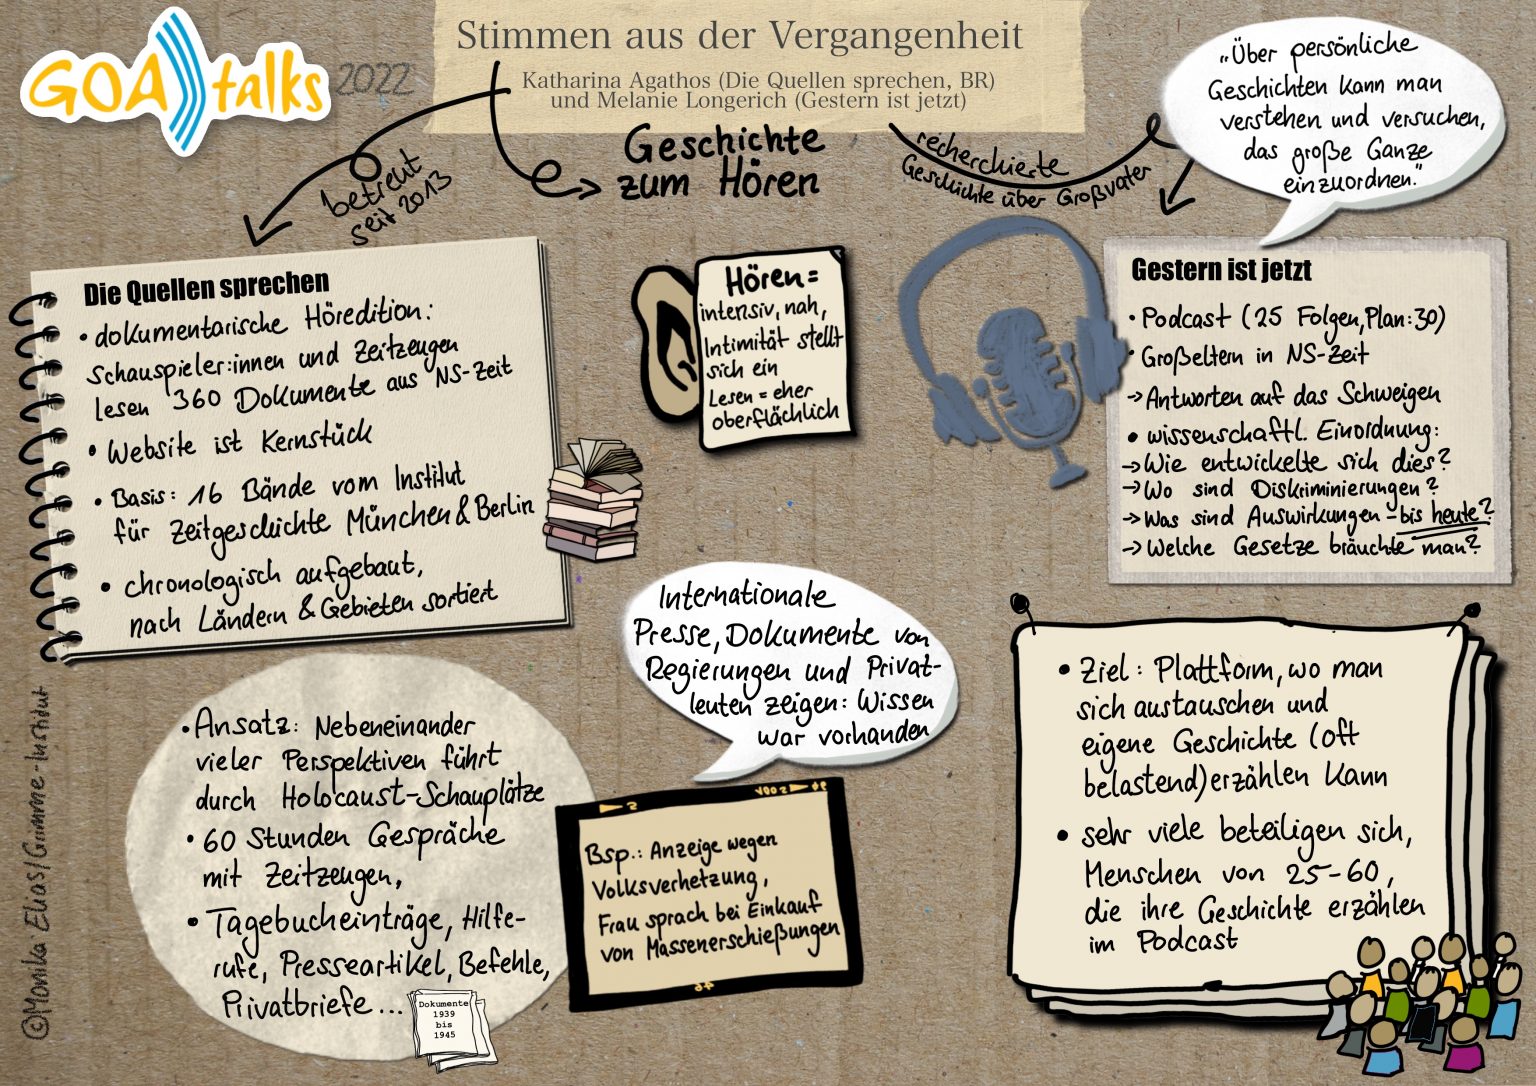 GOA talks 2022
Stimmen aus der Vergangenheit
Katharina Agathos (Die Quellen sprechen, BR)
und Melanie Longerich (Gestern ist jetzt)
Geschichte
zum Hören
betreut
seit 2013
recherchierte
Geschichte über Großvater
„Über persönliche
Geschichten kann man
verstehen und versuchen,
das große Ganze
einzuordnen."
Die Quellen sprechen
• dokumentarische Höredition:
Schauspieler:innen und Zeitzeugen
lesen 360 Dokumente aus NS-Zeit
• Website ist Kernstück
• Basis: 16 Bände vom Institut
für Zeitgeschichte München & Berlin
• chronologisch aufgebaut,
nach Ländern & Gebieten sortiert
Hören =
intensiv, nah,
Intimität stellt
sich ein
Lesen = eher
oberflächlich
Gestern ist jetzt
• Podcast (25 Folgen, Plan: 30)
• Großeltern in NS-Zeit
→ Antworten auf das Schweigen
• wissenschaftl. Einordnung:
→ Wie entwickelte sich dies?
→ Wo sind Diskriminierungen?
→ Was sind Auswirkungen – bis heute?
→ Welche Gesetze bräuchte man?
Internationale
Presse, Dokumente von
Regierungen und Privat-
leuten zeigen: Wissen
war vorhanden
• Ansatz: Nebeneinander
vieler Perspektiven führt
durch Holocaust-Schauplätze
• 60 Stunden Gespräche
mit Zeitzeugen,
• Tagebucheinträge, Hilfe-
rufe, Presseartikel, Befehle,
Privatbriefe...
Dokumente
1939
bis
1945
Bsp.: Anzeige wegen
Volksverhetzung,
Frau sprach bei Einkauf
von Massenerschießungen
• Ziel: Plattform, wo man
sich austauschen und
eigene Geschichte (oft
belastend) erzählen kann
• sehr viele beteiligen sich,
Menschen von 25-60,
die ihre Geschichte erzählen
im Podcast
©Monika Elias/Grimme-Institut